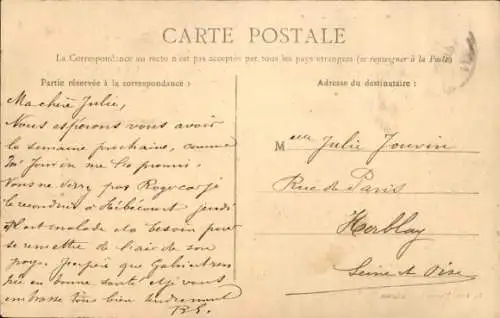 CARTE POSTALE
La Correspondance au recto n'est pas acceptée par tous les pays étrangers (se renseigner à la Poste)
Partie réservée à la correspondance :
Adresse du destinataire :
Ma chère Julie,
Nous espérons vous avoir
la semaine prochaine, comme
Mr Jouvin me l'a promis.
Vous ne verrez pas Roger car je
le reconduis à Hébécourt jeudi
il est malade et a besoin pour
se remettre de l'air de son
pays. J'espère que Gabriel
en bonne santé et je vous
embrasse tous bien tendrement
Melle Julie Jouvin
Rue de Paris
Herblay
Seine et Oise